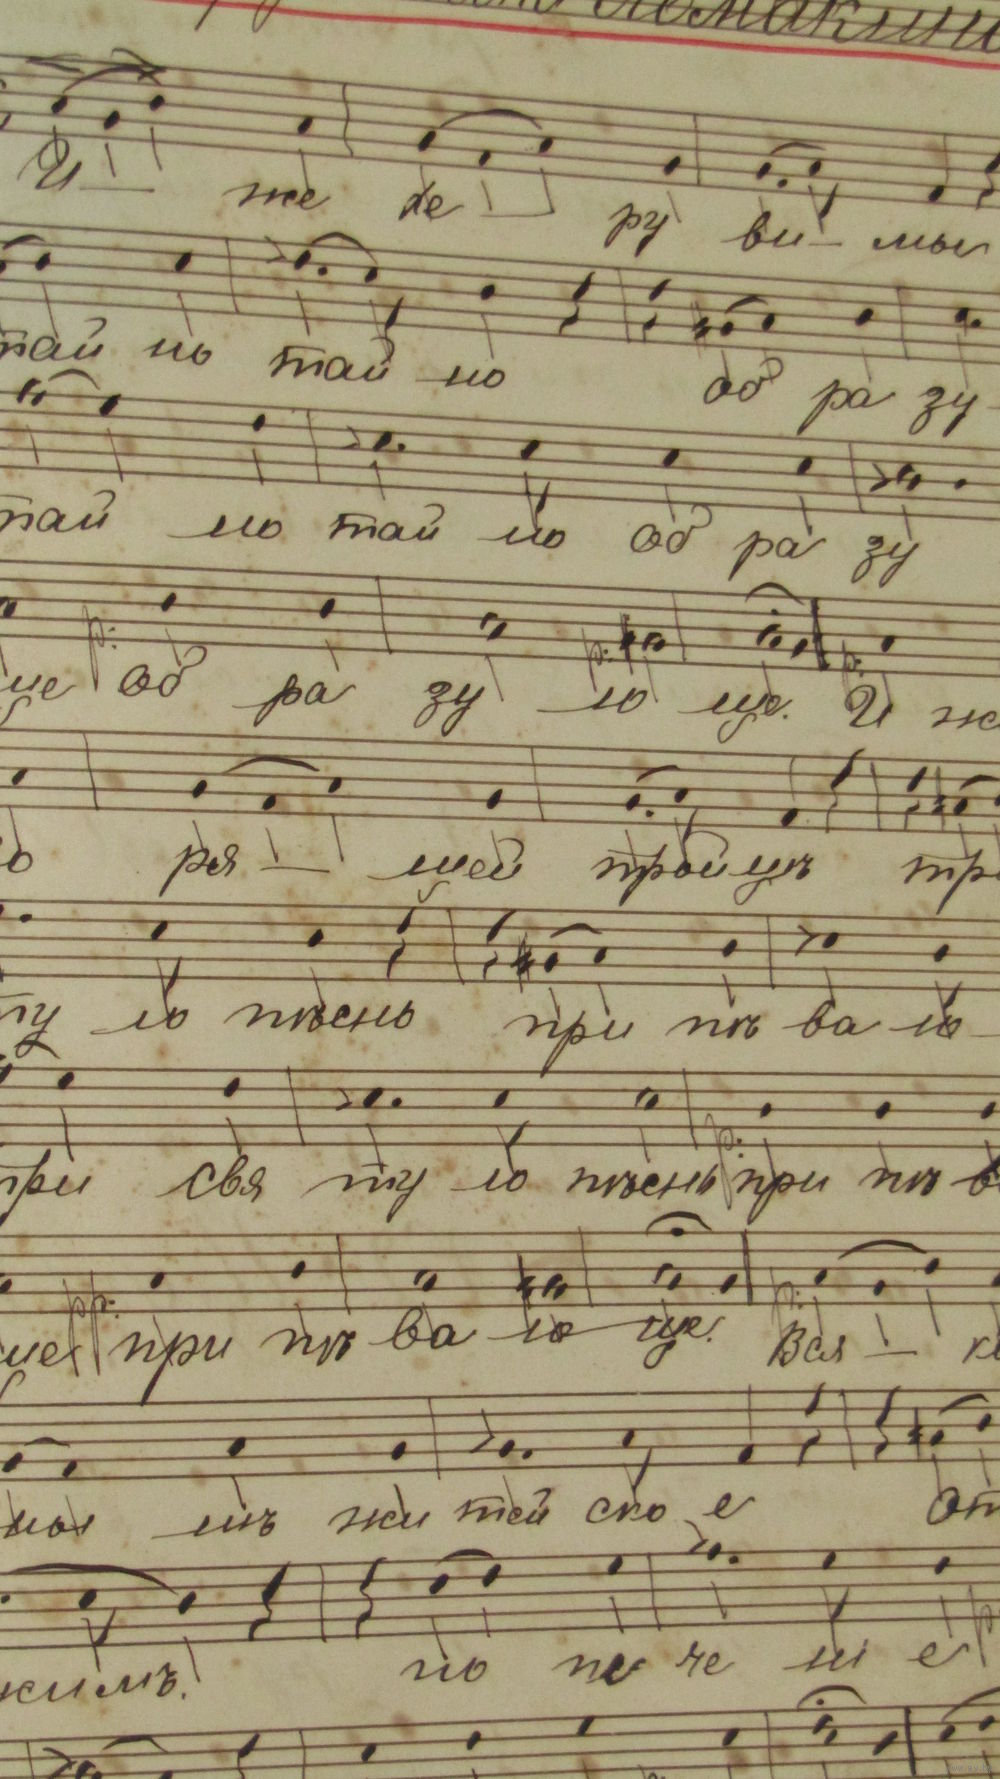 Ломакин
И — же хе — ру ви — мы
тай но тай но об ра зу
тай но тай но об ра зу
ще об ра зу ю ще. И
ря — щей трой цѣ
ю пѣснь при пѣ ва ю
при свя ту ю пѣснь при пѣ
ще при пѣ ва ю ще. Вся —
мы нѣ жи тей ско е
жимъ. по пе че ні е